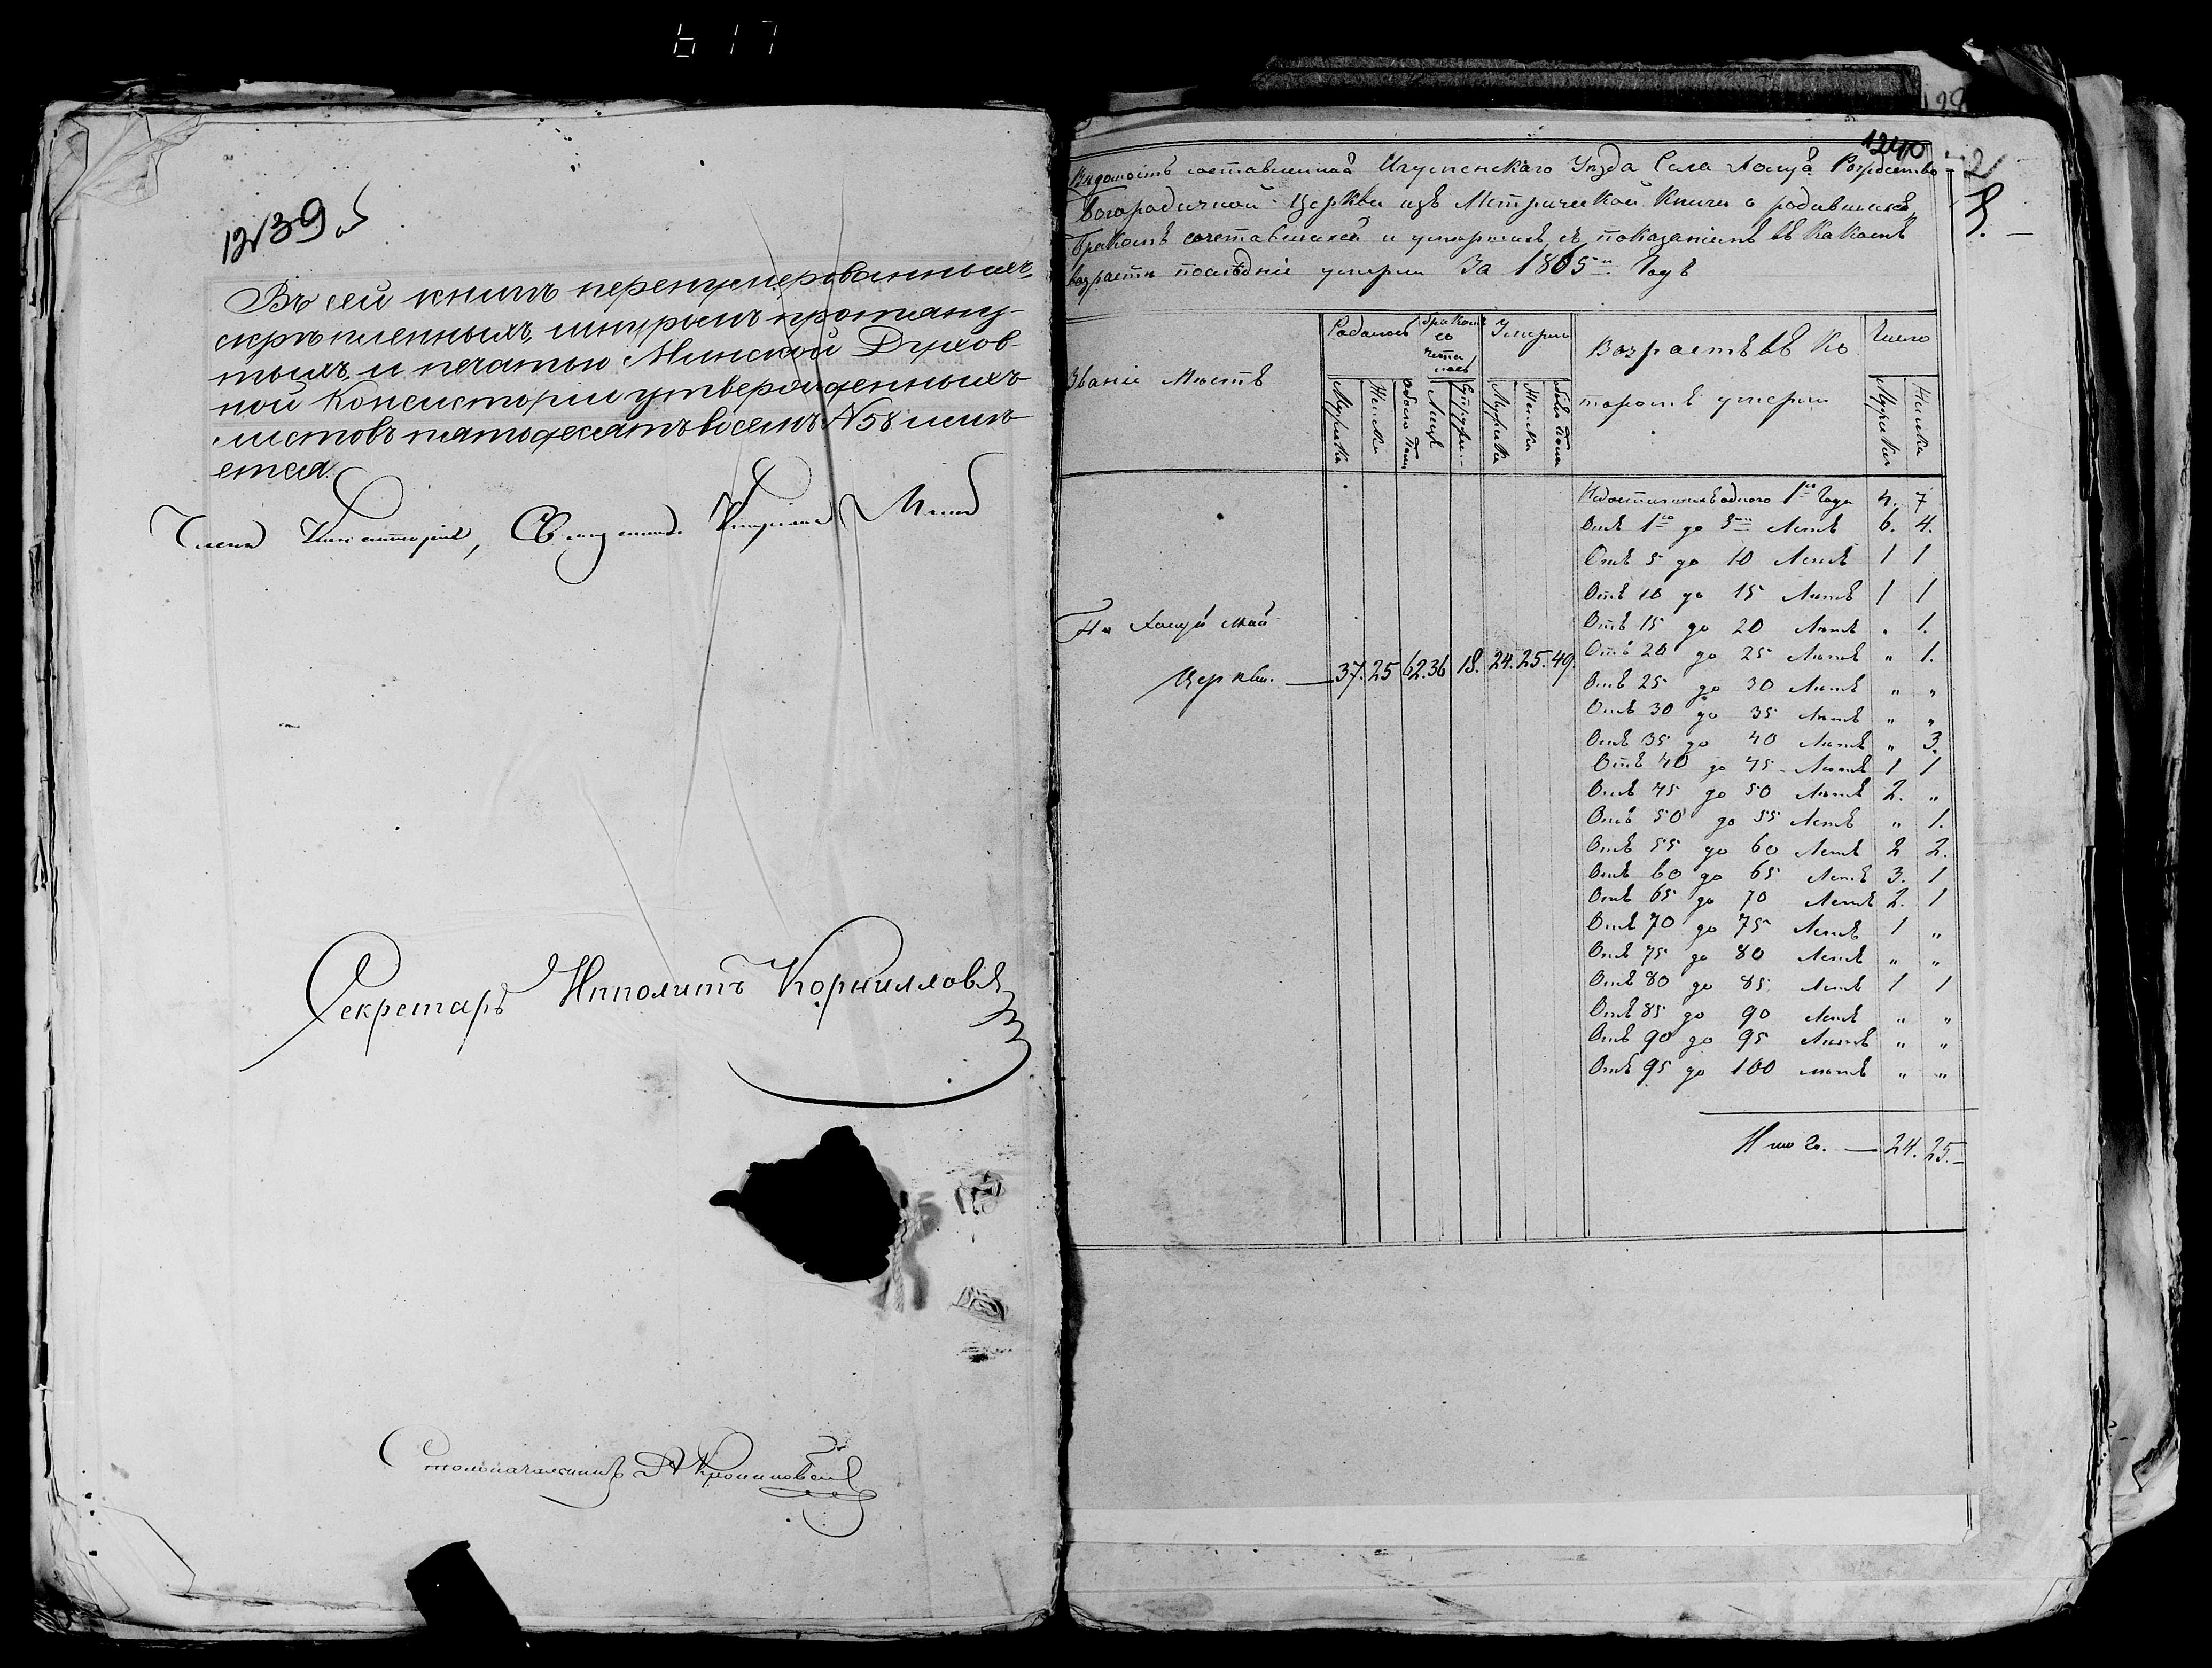 617
1239 об
Въ сей книгѣ перенумерованныхъ,
скрѣпленныхъ, шнуромъ протяну-
тыхъ, и печатью Минской Духов-
ной Консисторіи утвержденныхъ
листовъ пятьдесятъ восемь N 58 имѣ-
ется.
Членъ Консисторіи, Священникъ
Секретарь Ипполитъ Корниловъ
Столоначальникъ
1240
2
Вѣдомость составленная Игуменскаго Уѣзда Села Рождество
Богородичной Церкви изъ Метрической Книги о родившихся,
Бракомъ сочетавшихся и умершихъ, съ показаніемъ въ какомъ
возрастѣ послѣдніе умерли За 1865й Годъ
Званіе Мѣстъ
Родилось
Мужска
Женска
Обоего Пола
Бракомъ
со
чета
лось
Лицъ
Супруж.
Умерли
Мужска
Женска
Обоего Пола
Возрастъ въ Ко
торомъ умерли
Число
Мужска
Женска
Недостигшихъ одного 1го Года 4. 7
Отъ 1го до 5ти Лѣтъ 6. 4.
Отъ 5 до 10 Лѣтъ 1 1
Отъ 10 до 15 Лѣтъ 1 1
Отъ 15 до 20 Лѣтъ „ 1.
Отъ 20 до 25 Лѣтъ „ 1.
Отъ 25 до 30 Лѣтъ „ „
Отъ 30 до 35 Лѣтъ „ „
Отъ 35 до 40 Лѣтъ „ 3.
Отъ 40 до 45 Лѣтъ 1 1
Отъ 45 до 50 Лѣтъ 2. „
Отъ 50 до 55 Лѣтъ „ 1.
Отъ 55 до 60 Лѣтъ 2 2.
Отъ 60 до 65 Лѣтъ 3. 1
Отъ 65 до 70 Лѣтъ 2. 1
Отъ 70 до 75 Лѣтъ 1 „
Отъ 75 до 80 Лѣтъ „ „
Отъ 80 до 85 Лѣтъ 1 1
Отъ 85 до 90 Лѣтъ „ „
Отъ 90 до 95 Лѣтъ „ „
Отъ 95 до 100 лѣтъ „ „
Итого. — 24. 25. —
Церкви. — 37. 25 62. 36 18. 24. 25. 49.